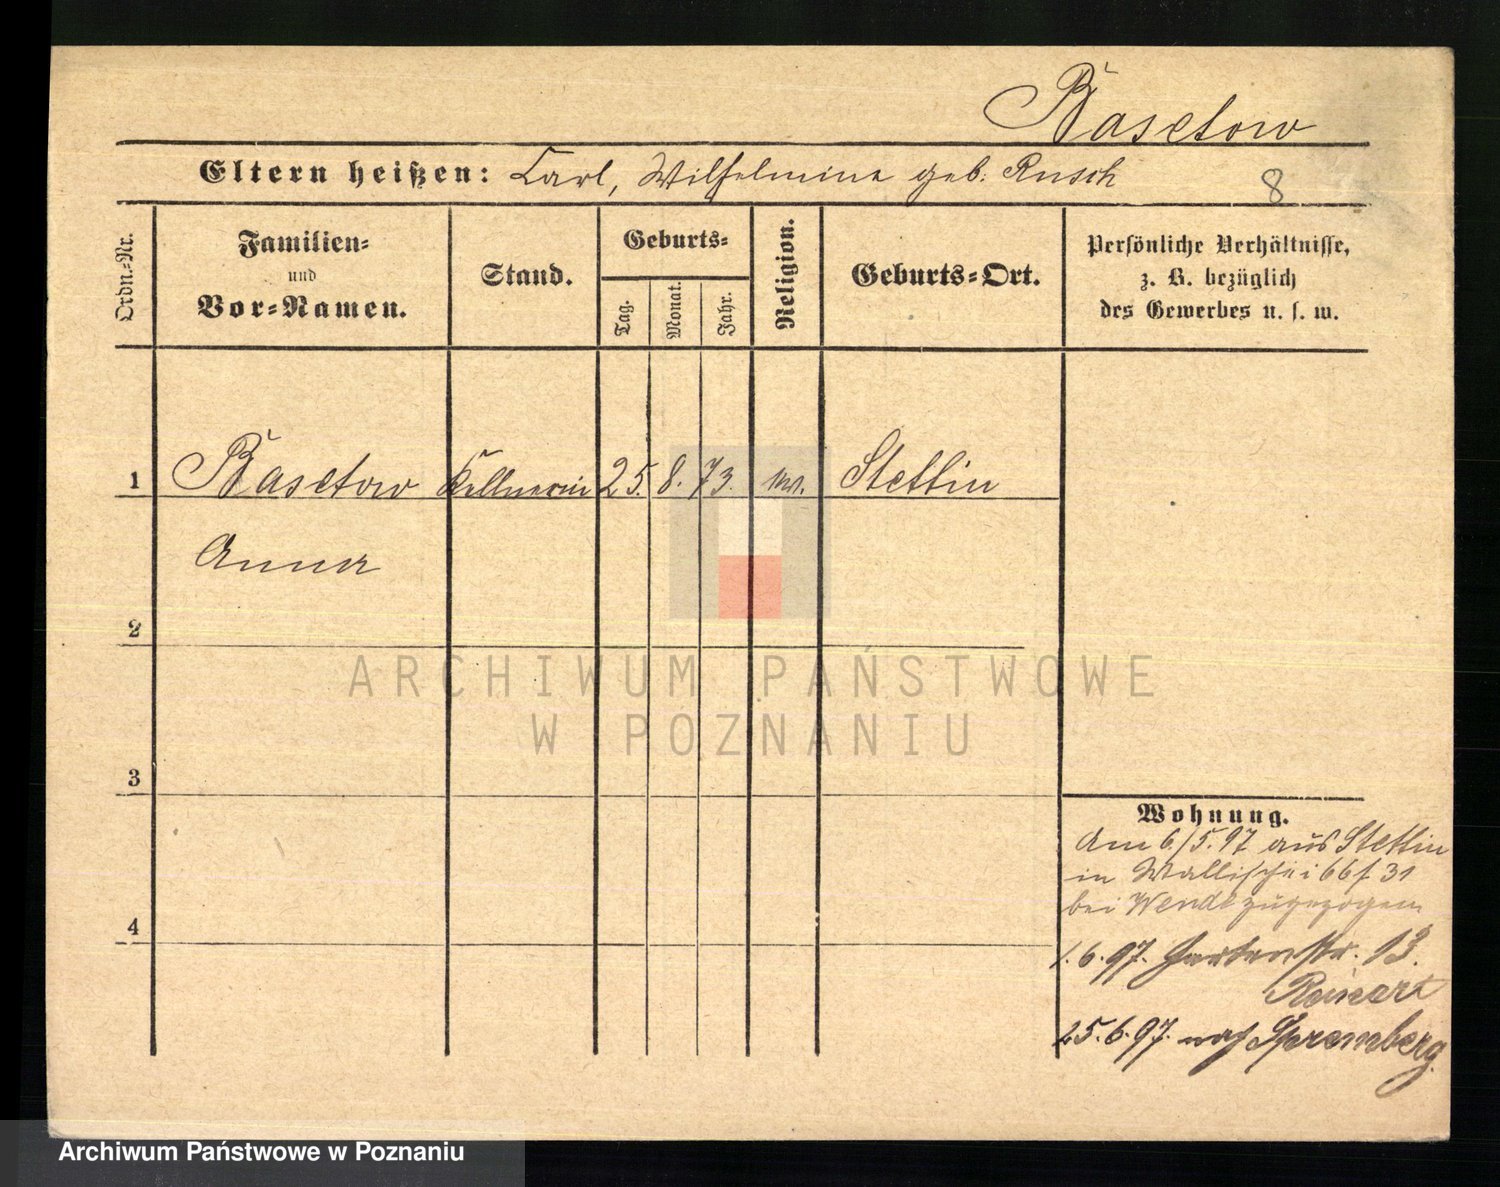 Basetow
Eltern heißen: Carl, Wilhelmine geb. Rusch
8
Ordn.-Nr.
Familien-
und
Vor-Namen.
Stand.
Geburts-
Tag.
Monat.
Jahr.
Religion.
Geburts-Ort.
Persönliche Verhältnisse,
z. B. bezüglich
des Gewerbes u. s. w.
1 Basetow Kellnerin 25. 8. 73. Stettin
Anna
2
3
4
Wohnung.
Am 6./5.97 aus Stettin
in Wallischei 66 f. 31
bei Wendt zugezogen
1.6.97. Gartenstr. 13.
25.6.97. nach Spremberg.
ARCHIWUM PAŃSTWOWE
W POZNANIU
Archiwum Państwowe w Poznaniu